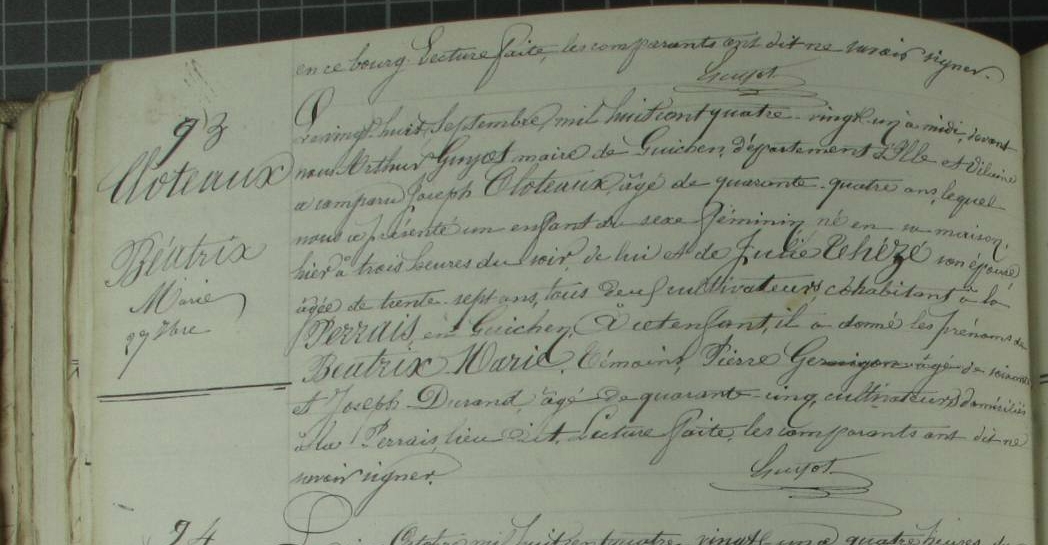 en ce bourg. Lecture faite, les comparants ont dit ne savoir signer.
Guyot
93
Cloteaux
Béatrix
Marie
27 7bre
Le vingt huit Septembre mil huit cent quatre-vingt-un à midi, devant
nous Arthur Guyot maire de Guichen, département d'Ille et Vilaine
a comparu Joseph Cloteaux, âgé de quarante-quatre ans, lequel
nous a présenté un enfant du sexe féminin né en sa maison,
hier à trois heures du soir, de lui et de Julie Tehèzé son épouse
âgée de trente-sept ans, tous deux cultivateurs, cohabitant à la
Perrais, en Guichen, à cet enfant, il a donné les prénoms de
Beatrix Marie. Témoins, Pierre âgé de soixante
et Joseph Durand, âgé de quarante cinq, cultivateurs domiciliés
à la Perrais, lieu dit, Lecture faite, les comparants ont dit ne
savoir signer.
Guyot
94
Octobre mil huit cent quatre-vingt-un à quatre heures du